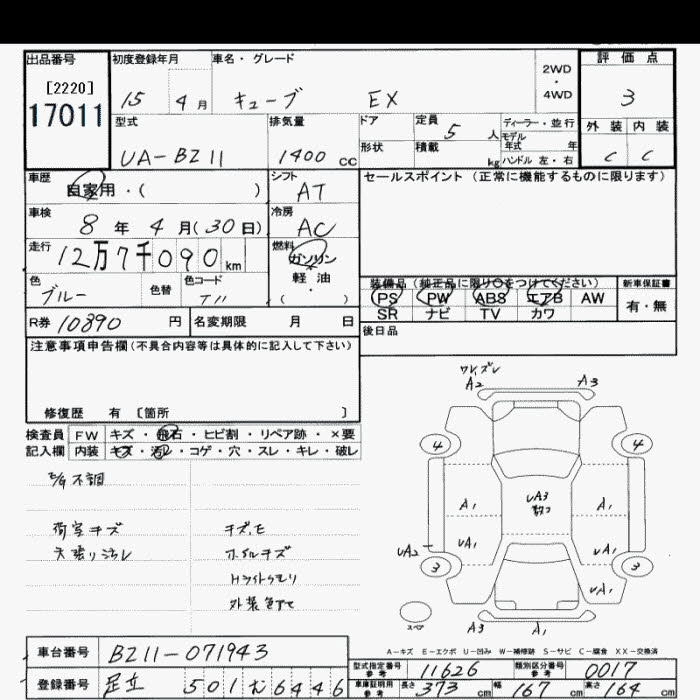 出品番号 初度登録年月 車名・グレード 2WD・4WD 評価点
[2220]
17011
15 4月 キューブ EX 3
型式 排気量 ドア 定員 5人 ディーラー・並行 外装 内装
モデル年式 年
UA-BZ11 1400 cc 形状 積載 kg ハンドル 左・右 C C
車歴 自家用・( ) シフト AT セールスポイント(正常に機能するものに限ります)
車検 8年 4月(30日) 冷房 AC
走行 12万7千090km 燃料 ガソリン
軽・油
・( )
色 ブルー 色替 色コード 装備品(純正品に限り○をつけてください) 新車保証書
PS PW ABS エアB AW 有・無
SR ナビ TV カワ
R券 10890円 名変期限 月 日
後日品
注意事項申告欄(不具合内容等は具体的に記入して下さい)
修復歴 有 〔箇所 〕
検査員 FW キズ・飛石・ヒビ割・リペア跡・×要
記入欄 内装 キズ・汚レ・コゲ・穴・スレ・キレ・破レ
不調
荷室キズ キズ、モ
天張り汚レ ホイルキズ
外装色アセ
A2 A3
4 4
A1 UA3 A1
UA1 UA1
UA2
3 3
UA1
スペア
A3 A1
A-キズ E-エクボ U-凹み W-補修跡 S-サビ C-腐食 XX-交換済
車台番号 BZ11-071943
型式指定番号 参考 11626 類別区分番号 参考 0017
登録番号 足立 501 む 6446
車庫証明用 参考 長さ 373cm 幅 167cm 高さ 164cm